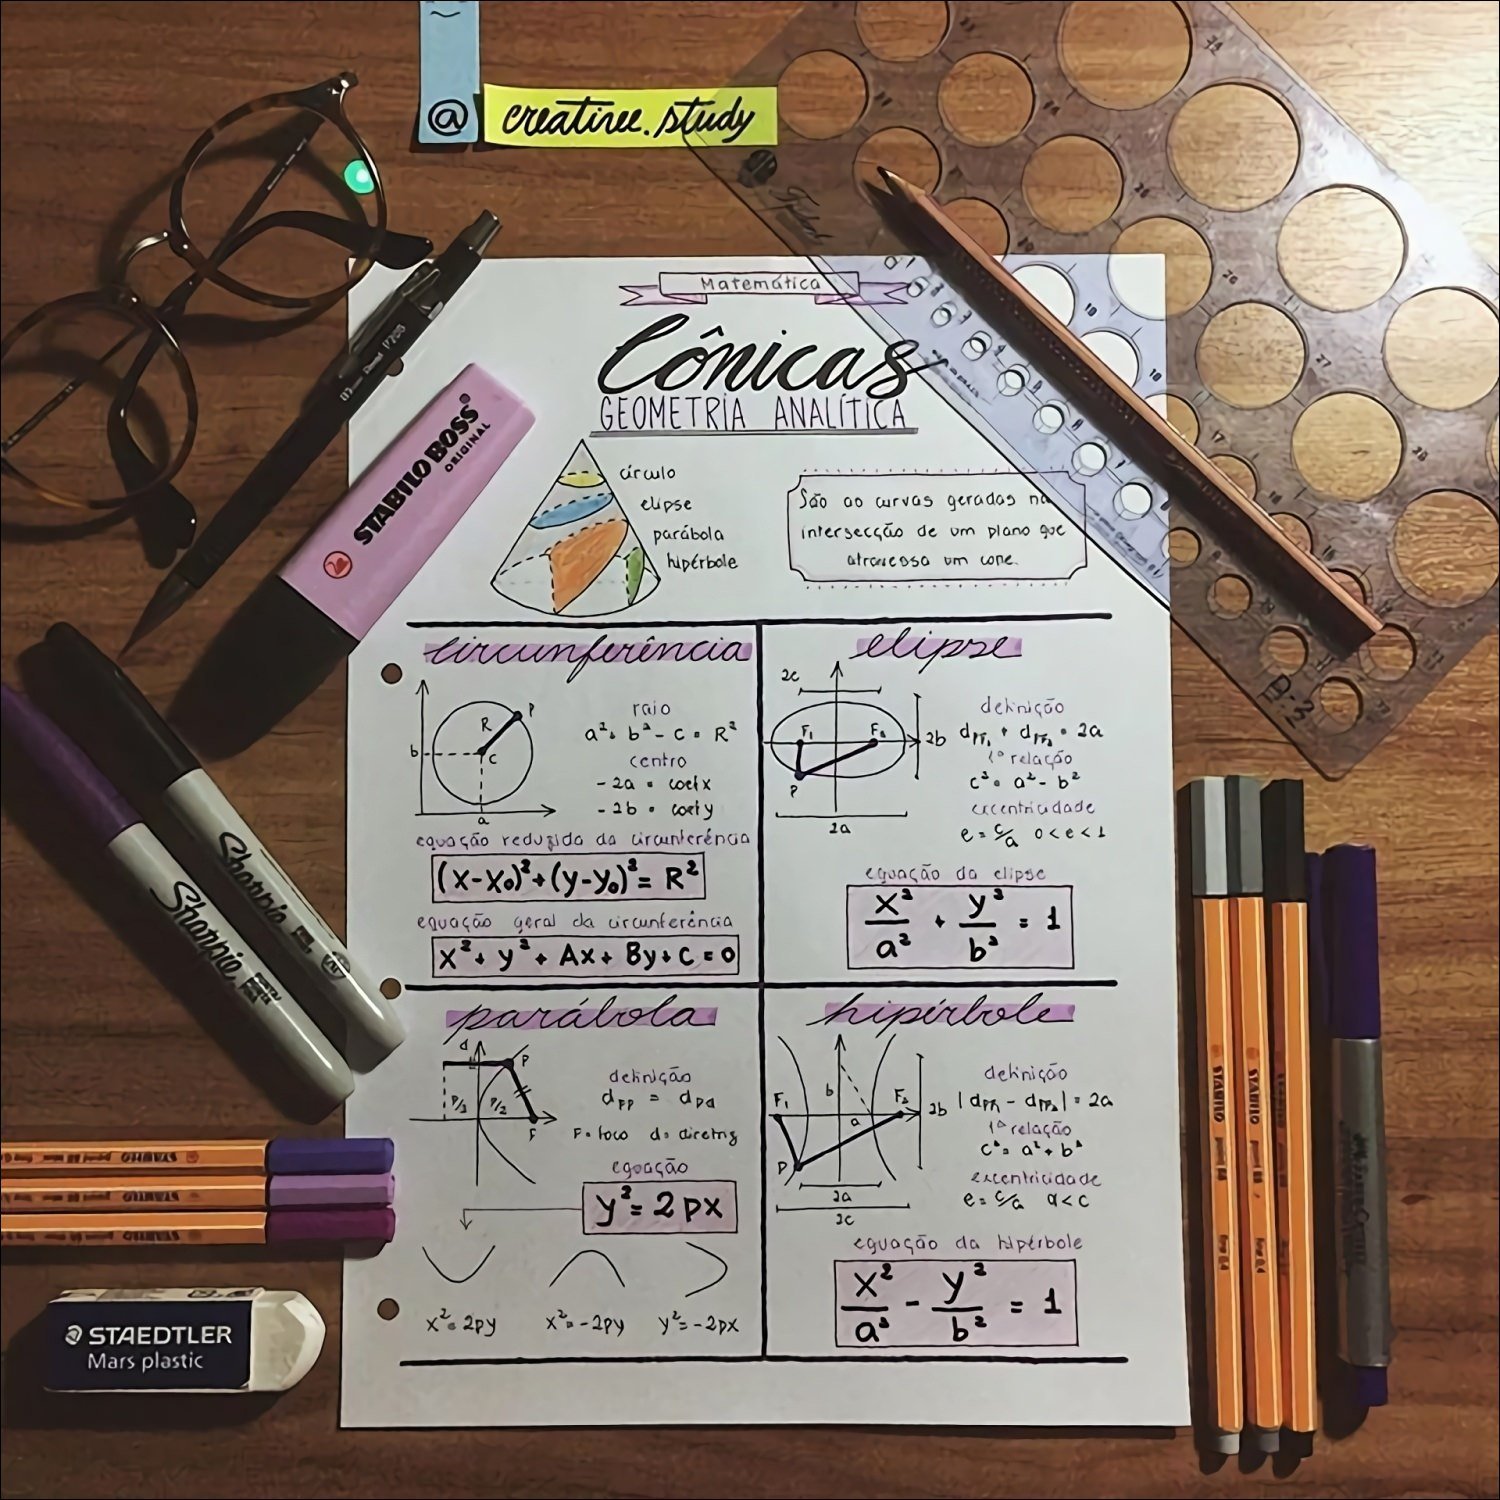 @ creativee.study
Matemática
Cônicas
GEOMETRIA ANALÍTICA
círculo
elipse
parábola
hipérbole
São as curvas geradas na
intersecção de um plano que
atravessa um cone.
STABILO BOSS
ORIGINAL
circunferência
R
P
C
b
a
raio
a² + b² - c = R²
centro
-2a = coef x
-2b = coef y
equação reduzida da circunferência
(x-x₀)² + (y-y₀)² = R²
equação geral da circunferência
x² + y² + Ax + By + C = 0
elipse
2c
F₁
F₂
2b
P
2a
definição
dPF₁ + dPF₂ = 2a
1ª relação
c² = a² - b²
excentricidade
e = c/a 0 < e < 1
equação da elipse
x²/a² + y²/b² = 1
parábola
d
P
P/2
P/2
F
definição
dFP = dPd
F = foco d = diretriz
equação
y² = 2px
x² = 2py
x² = -2py
y² = -2px
hipérbole
F₁
b
a
F₂
2b
P
2a
2c
definição
|dPF₁ - dPF₂| = 2a
1ª relação
c² = a² + b²
excentricidade
e = c/a a < c
equação da hipérbole
x²/a² - y²/b² = 1
Sharpie
Sharpie
STABILO
STABILO
STABILO
STAEDTLER
Mars plastic
STABILO point 88 fine 0.4
STABILO point 88 fine 0.4
STABILO point 88 fine 0.4